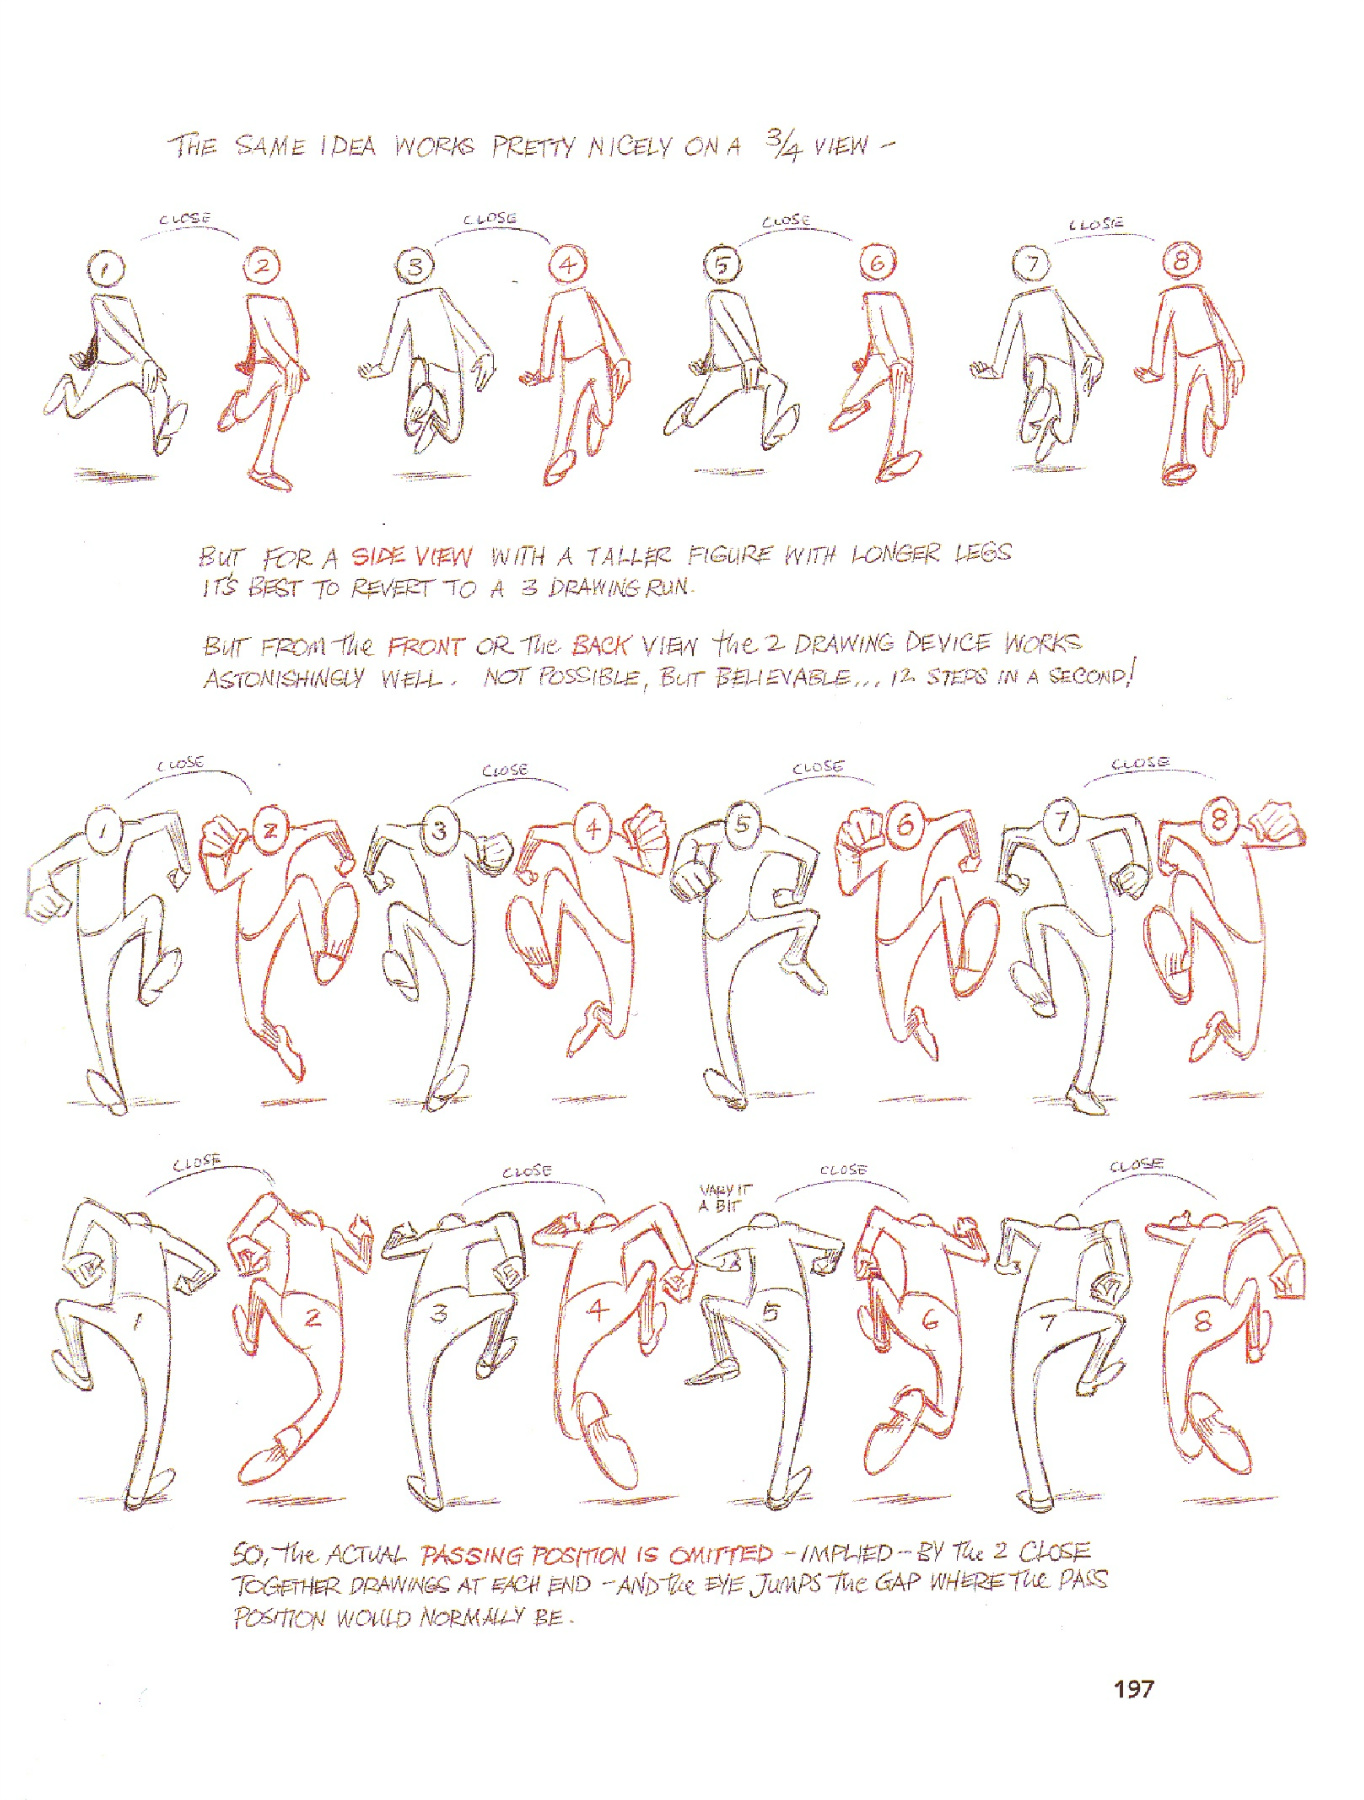 THE SAME IDEA WORKS PRETTY NICELY ON A 3/4 VIEW –
CLOSE CLOSE CLOSE CLOSE
1 2 3 4 5 6 7 8
BUT FOR A SIDE VIEW WITH A TALLER FIGURE WITH LONGER LEGS
IT'S BEST TO REVERT TO A 3 DRAWING RUN.
BUT FROM The FRONT OR The BACK VIEW the 2 DRAWING DEVICE WORKS
ASTONISHINGLY WELL. NOT POSSIBLE, BUT BELIEVABLE... 12 STEPS IN A SECOND!
CLOSE CLOSE CLOSE CLOSE
1 2 3 4 5 6 7 8
CLOSE CLOSE CLOSE CLOSE
VARY IT
A BIT
1 2 3 4 5 6 7 8
SO, The ACTUAL PASSING POSITION IS OMITTED – IMPLIED – BY The 2 CLOSE
TOGETHER DRAWINGS AT EACH END – AND the EYE JUMPS The GAP WHERE The PASS
POSITION WOULD NORMALLY BE.
197